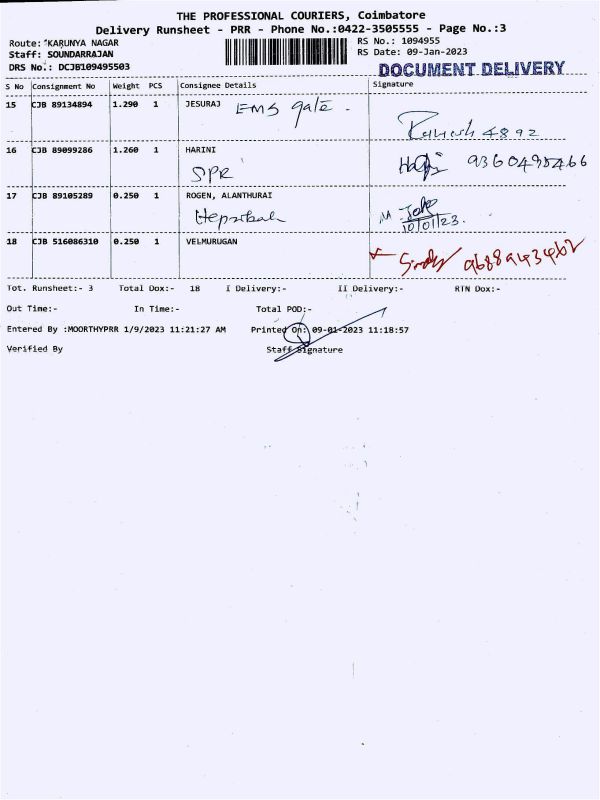 THE PROFESSIONAL COURIERS, Coimbatore
Delivery Runsheet - PRR - Phone No.:0422-3505555 - Page No.:3
Route: KARUNYA NAGAR
RS No.: 1094955
Staff: SOUNDARRAJAN
RS Date: 09-Jan-2023
DRS No.: DCJB109495503
DOCUMENT DELIVERY
S No Consignment No Weight PCS Consignee Details Signature
15 CJB 89134894 1.290 1 JESURAJ EMS gate.
4892
16 CJB 89099286 1.260 1 HARINI
SPR 9360495466
17 CJB 89105289 0.250 1 ROGEN, ALANTHURAI
10/01/23.
18 CJB 516086310 0.250 1 VELMURUGAN
9688943462
Tot. Runsheet:- 3 Total Dox:- 18 I Delivery:- II Delivery:- RTN Dox:-
Out Time:- In Time:- Total POD:-
Entered By :MOORTHYPRR 1/9/2023 11:21:27 AM Printed On: 09-01-2023 11:18:57
Verified By Staff Signature